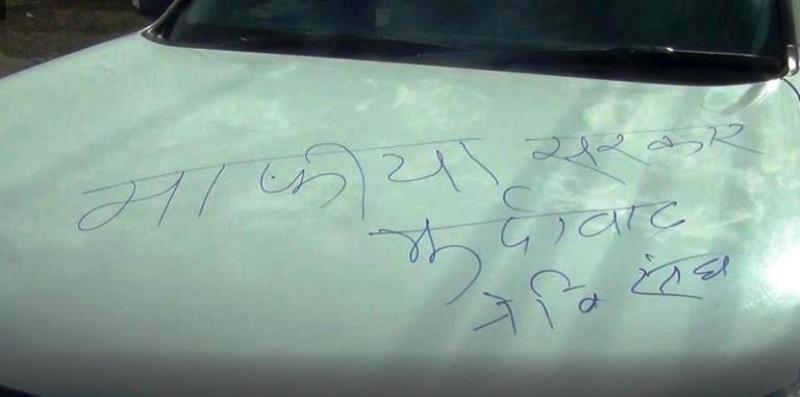 माफीया सरकार
मुर्दावाद
ने वि संघ